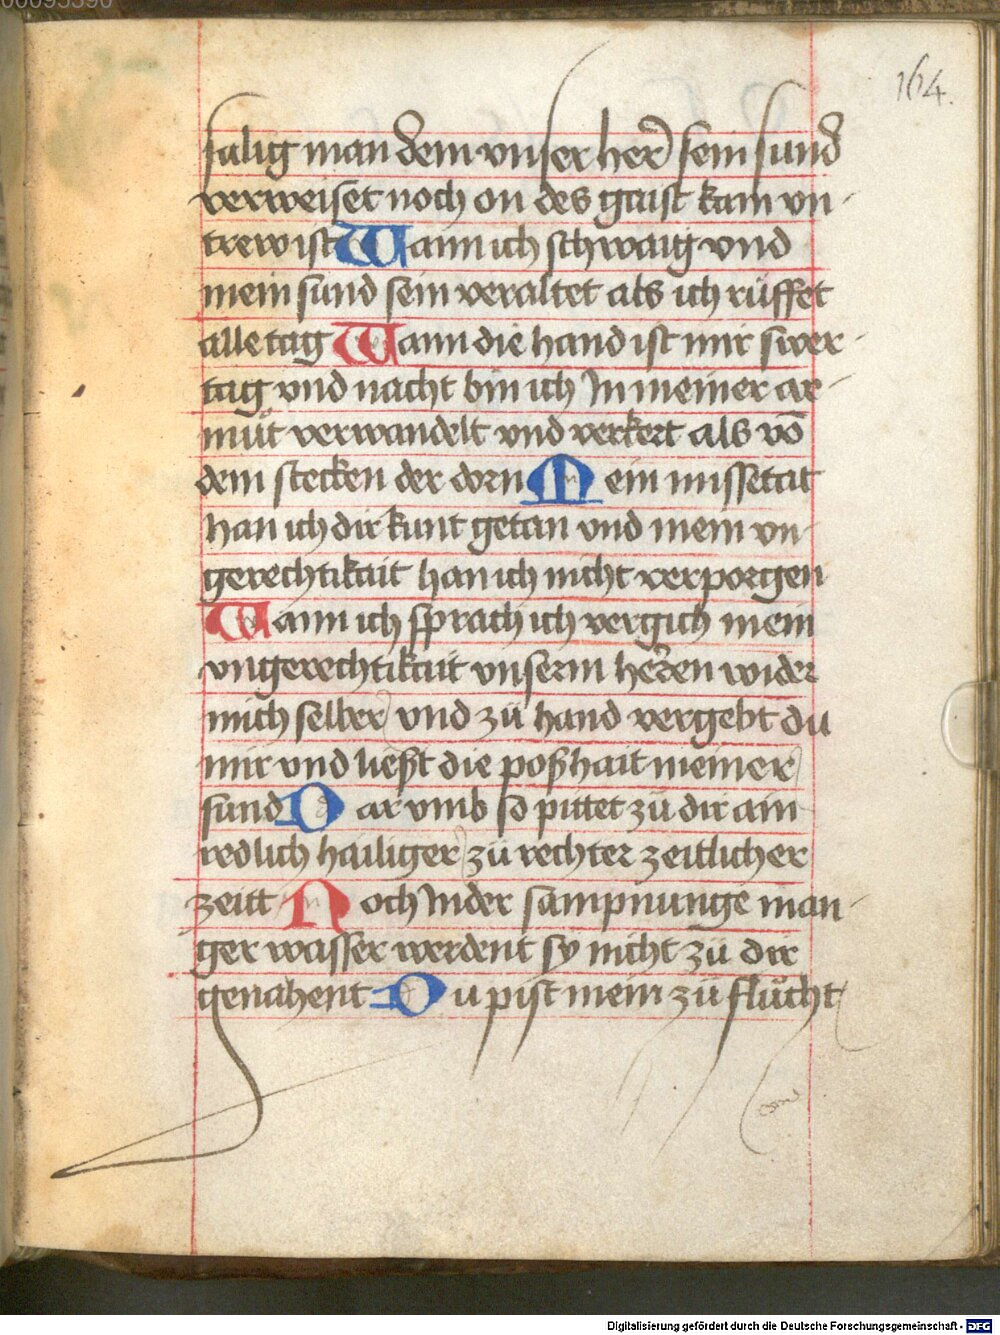 00095590
164.
salig man dem vnser her̄ sein sund
verweiset noch on des gaist kain vn-
trew ist Wann ich schwaig vnd
mein sund sein veraltet als ich rüffet
alle tag Wann die hand ist mir swer-
tag vnd nacht bin ich In meiner ar-
müt verwandelt vnd verkert als vō
dem stecken der dorn Mein missetat
han ich dir kunt getan vnd mein vn-
gerechtikait han ich nicht verporgen
Wann ich sprach ich vergich mein
vngerechtikait vnserm herren wider
mich selber vnd zü hand vergebt du
mir vnd liesst die poshait meiner
sund Dar vmb so pittet zü dir ain
iedlich hailiger zü rechter zeitlicher
zeitt Noch In der sampnunge man-
ger wasser werdent sy nicht zü dir
genahent Du pist mein zü flücht
Digitalisierung gefördert durch die Deutsche Forschungsgemeinschaft - DFG